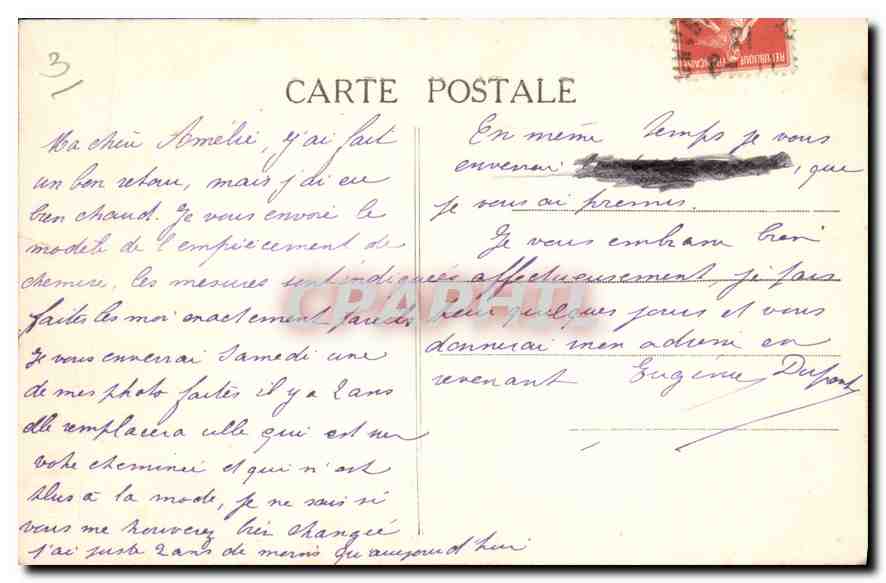 3
CARTE POSTALE
REPUBLIQUE
FRANÇAISE
Ma chère Amélie, j'ai fait
un bon retour, mais j'ai eu
bien chaud. Je vous envoie le
modèle de l'empiècement de
chemise, les mesures sont indiquées
faites les moi exactement
Je vous enverrai Samedi une
de mes photo faites il y a 2 ans
elle remplacera celle qui est sur
votre cheminée et qui n'est
plus à la mode, je ne sais si
vous me trouverez très changée
j'ai juste 2 ans de moins qu'aujourd'hui
En même temps je vous
enverrai , que
je vous ai promis.
Je vous embrasse bien
affectueusement, je pars
quelques jours et vous
donnerai mon adresse en
revenant Eugénie Dupont
CPAPHIL